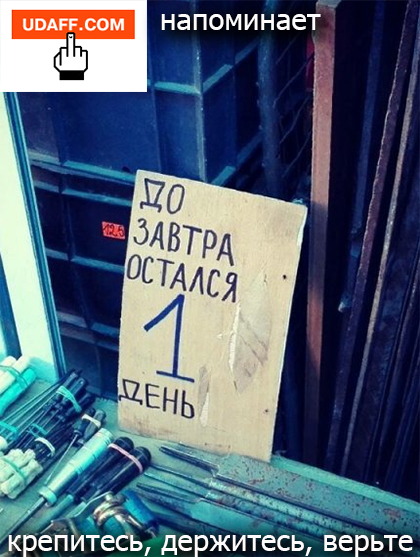 UDAFF.COM
напоминает
ДО
ЗАВТРА
ОСТАЛСЯ
1
ДЕНЬ
крепитесь, держитесь, верьте